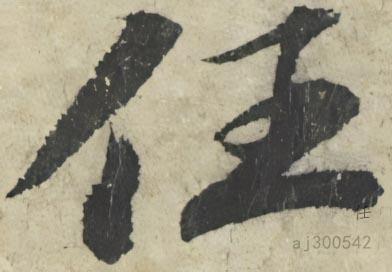 任
任
aj300542